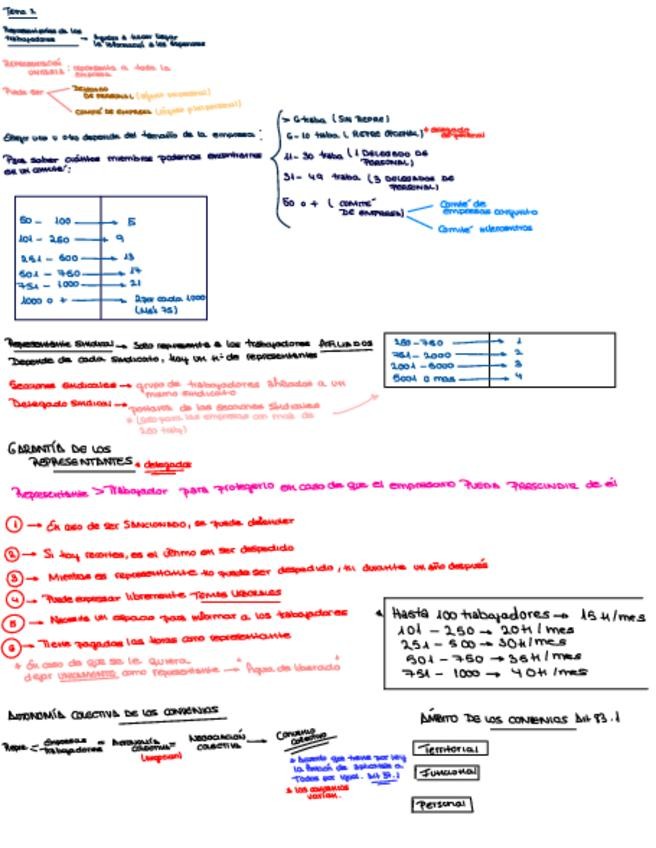 Tema 2
Representantes de los trabajadores → Ayudan a hacer llegar la información a los
REPRESENTACIÓN UNITARIA: representa a toda la empresa
Puede ser
DELEGADO DE PERSONAL (órgano unipersonal)
COMITÉ DE EMPRESA (órgano pluripersonal)
Elegir uno u otro depende del tamaño de la empresa:
> 6 traba (SIN REPRE)
6-10 traba (REPRE OPCIONAL) * delegado de personal
11-30 traba (1 DELEGADO DE PERSONAL)
31-49 traba (3 DELEGADOS DE PERSONAL)
50 o + (COMITÉ DE EMPRESA)
Comité de empresas conjunto
Comité intercentros
Para saber cuántos miembros podemos encontrarnos en un comité:
50 - 100 → 5
101 - 250 → 9
251 - 500 → 13
501 - 750 → 17
751 - 1000 → 21
1000 o + → 2 por cada 1000 (Máx 75)
Representante Sindical → Solo representa a los trabajadores AFILIADOS
Depende de cada sindicato, hay un nº de representantes
250-750 → 1
751-2000 → 2
2001-5000 → 3
5001 o mas → 4
Secciones sindicales → grupo de trabajadores afiliados a un mismo sindicato
Delegado Sindical → portavoz de las secciones Sindicales
* (solo para las empresas con mas de 250 trab)
GARANTÍA DE LOS REPRESENTANTES * delegados
Representante > Trabajador para protegerlo en caso de que el empresario PUEDA PRESCINDIR de él
1 → En caso de ser SANCIONADO, se puede defender
2 → Si hay recortes, es el último en ser despedido
3 → Mientras es representante no puede ser despedido, ni durante un año después
4 → Puede expresar libremente TEMAS LABORALES
5 → Necesita un espacio para informar a los trabajadores
6 → Tiene pagadas las horas como representante
* Hasta 100 trabajadores → 15 H/mes
101 - 250 → 20 H/mes
251 - 500 → 30 H/mes
501 - 750 → 35 H/mes
751 - 1000 → 40 H/mes
+ En caso de que se le quiera dejar ÚNICAMENTE como representante → "Figura de liberado"
AUTONOMÍA COLECTIVA DE LOS CONVENIOS
Repre. < Empresas Trabajadores = AUTONOMÍA COLECTIVA = NEGOCIACIÓN COLECTIVA → Convenio colectivo
(negocian)
* Acuerdo que tiene por ley la función de aplicarse a Todos por igual. Art 37.1
* los convenios varían.
ÁMBITO DE LOS CONVENIOS Art 83.1
Territorial
Funcional
Personal